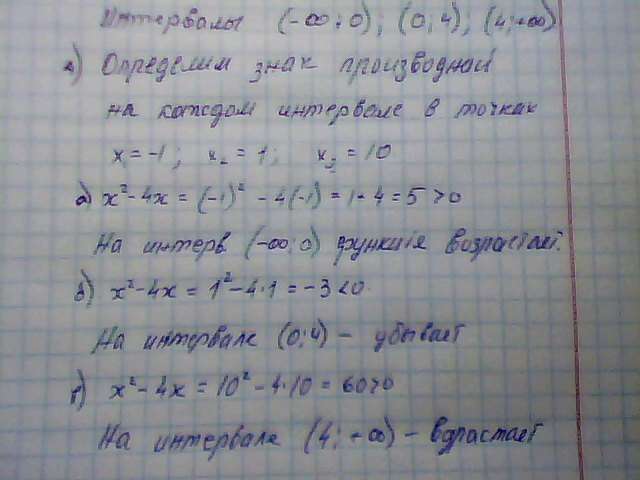 Интервалы (-∞;0); (0;4); (4;+∞)
а) Определим знак производной
на каждом интервале в точках
x = -1; x₂ = 1; x₃ = 10
а) x² - 4x = (-1)² - 4(-1) = 1 - 4 = 5 > 0
На интерв (-∞;0) функція возрастает.
б) x² - 4x = 1² - 4·1 = -3 < 0
На интервале (0;4) - убывает
г) x² - 4x = 10² - 4·10 = 60 > 0
На интервале (4; +∞) - врастает